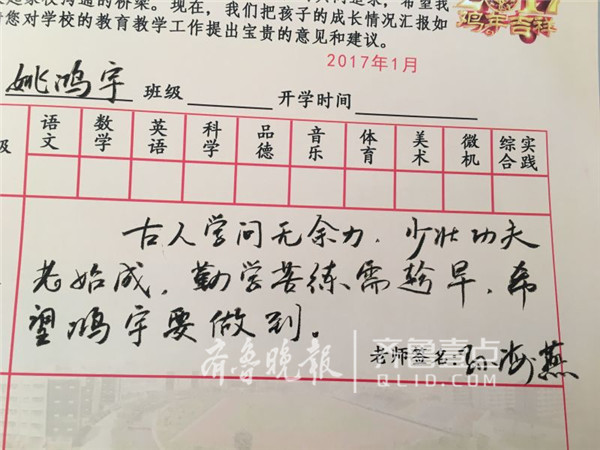 起家校沟通的桥梁。现在，我们把孩子的成长情况汇报如
您对学校的教育教学工作提出宝贵的意见和建议。
鸡年吉祥
2017年1月
姚鸿宇 班级 开学时间
级 语文 数学 英语 科学 品德 音乐 体育 美术 微机 综合实践
古人学问无余力，少壮功夫
老始成，勤学苦练需趁早，希
望鸿宇要做到。
老师签名 孙海燕
齐鲁晚报 齐鲁壹点
QLID.COM